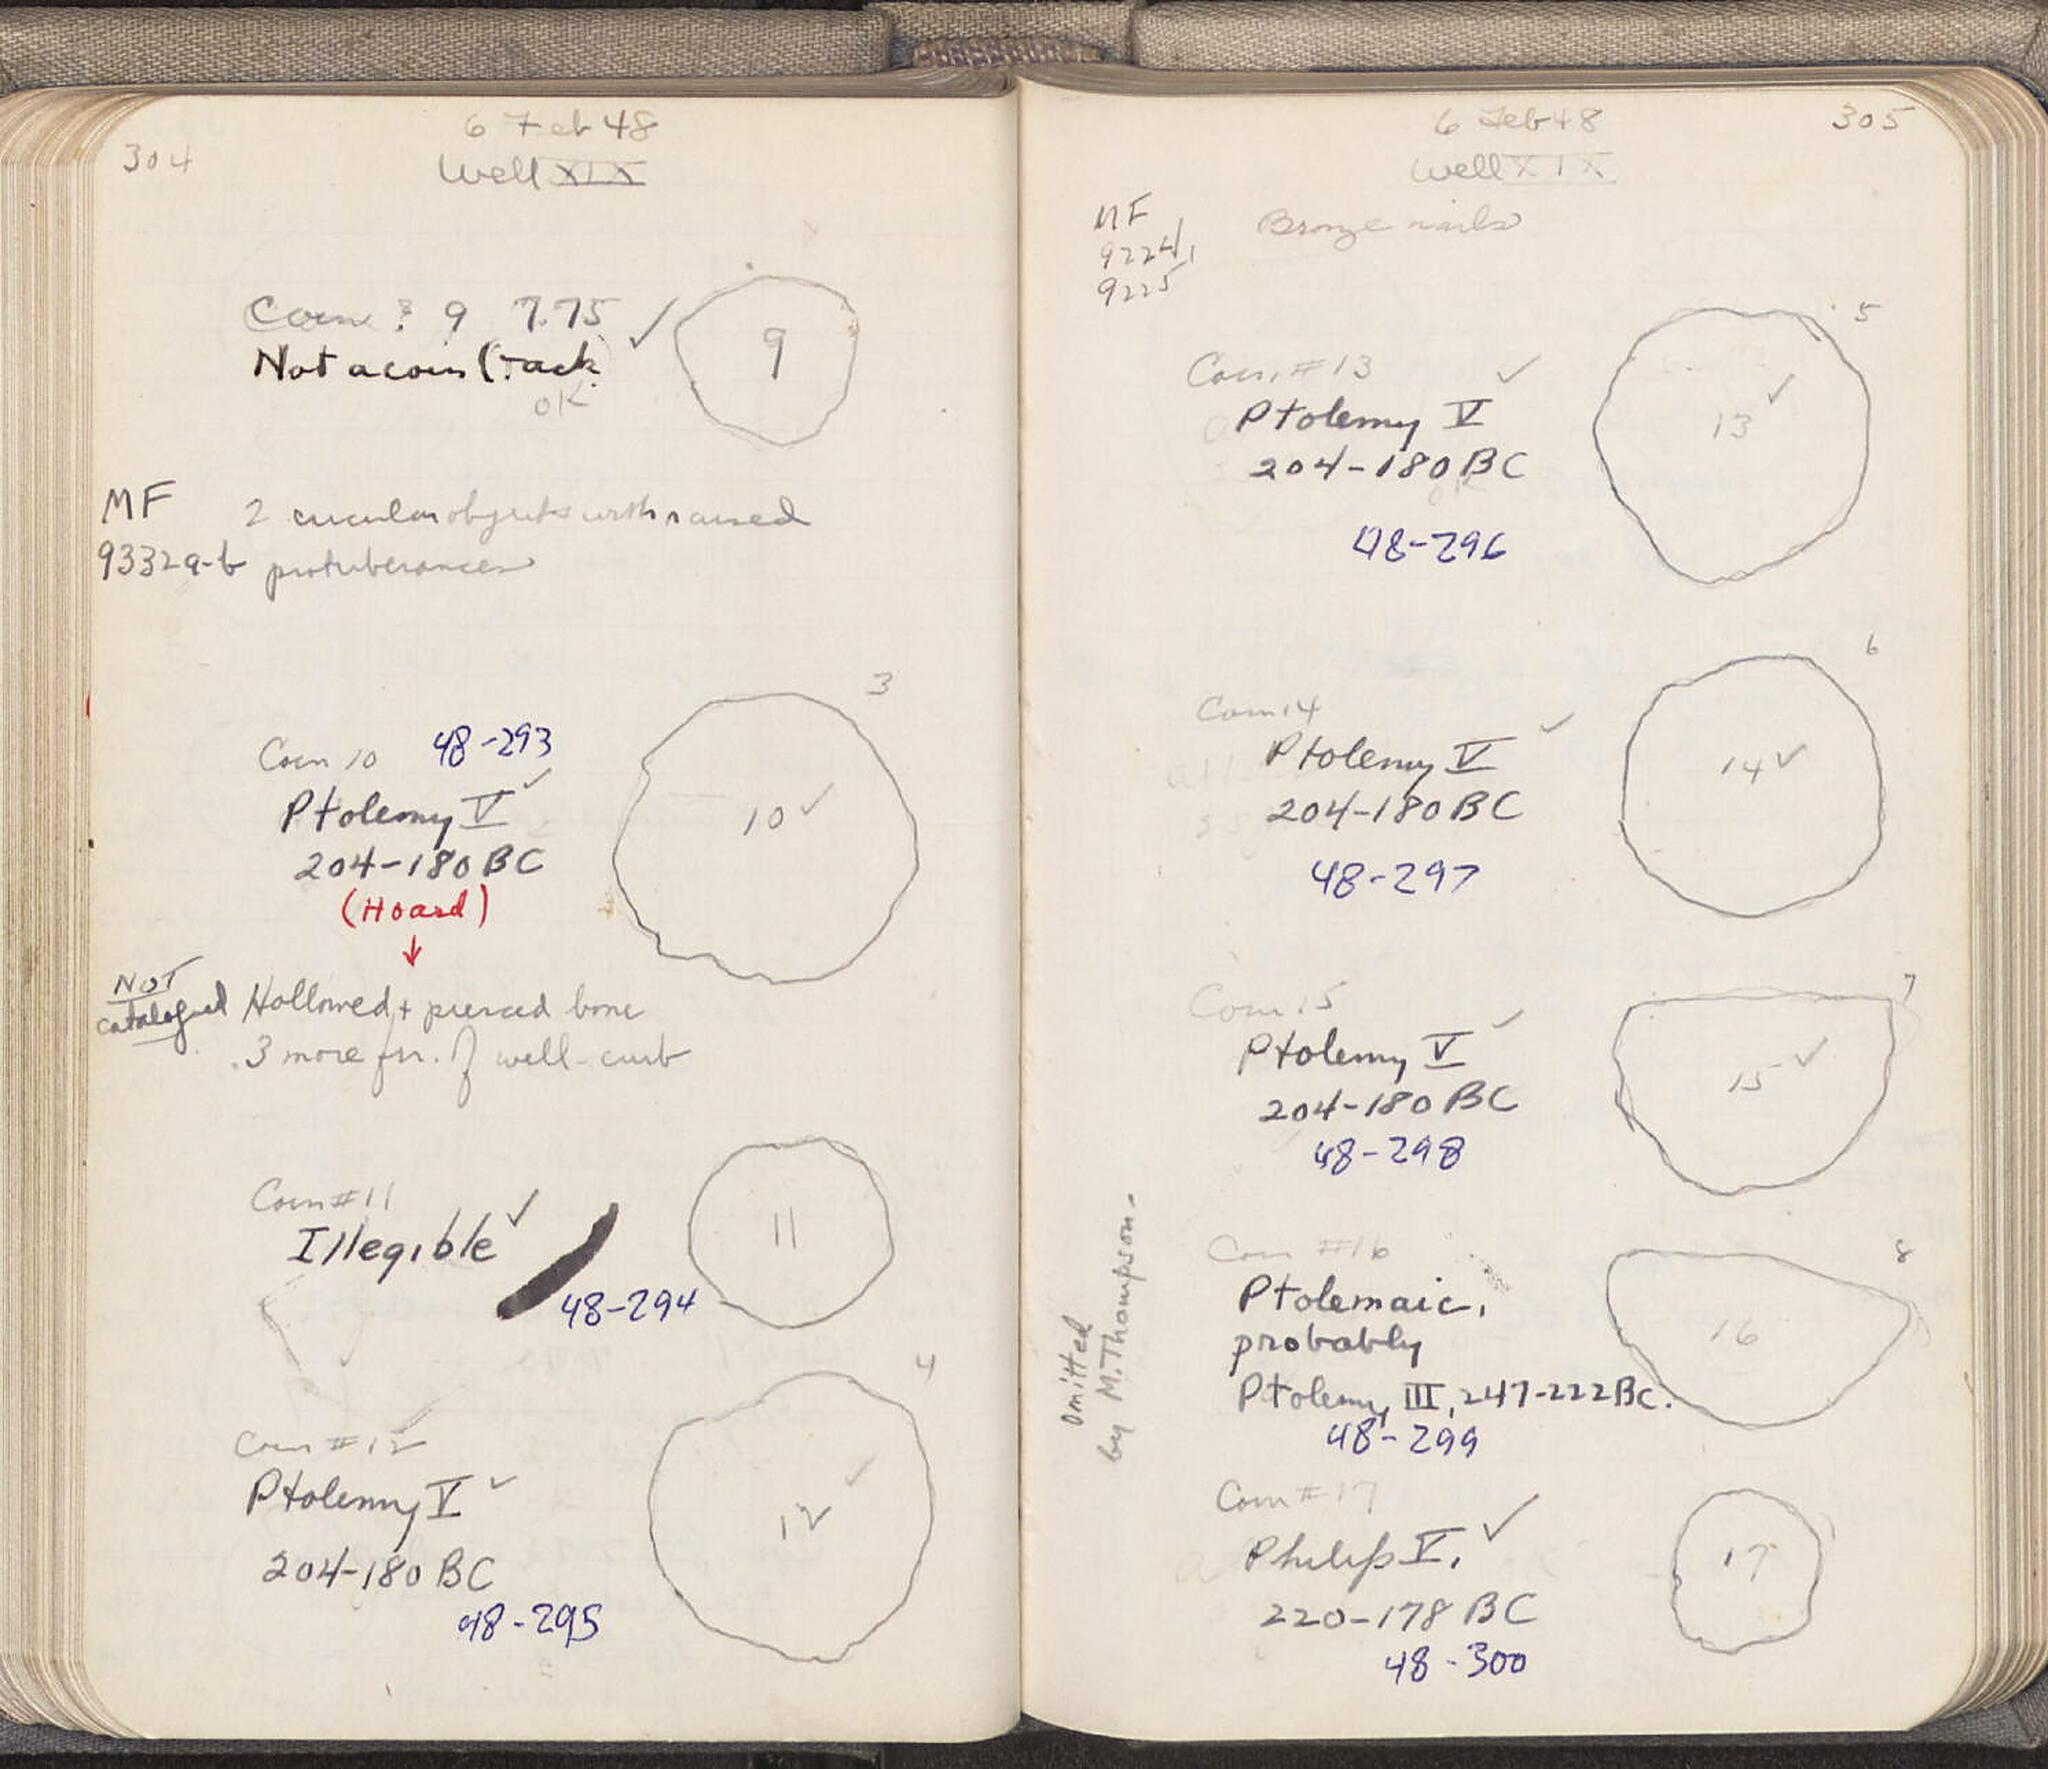 304
6 Feb 48
Well XIX
Coin ? 9 7.75 ✓
Not a coin (Tack
OK
9
MF
9332a-b
2 circular objects with raised
protuberances
3
Coin 10 48-293
Ptolemy V ✓
204-180 BC
(Hoard)
↓
10 ✓
NOT
catalogued
Hollowed + pierced bone
3 more fr. of well-curb
Coin #11
Illegible ✓
48-294
11
4
Coin #12
Ptolemy V ✓
204-180 BC
48-295
12 ✓
6 Feb 48
305
Well XIX
MF
9224,
9225
Bronze nails
5
Coin #13 ✓
Ptolemy V
204-180 BC
OK
48-296
13 ✓
6
Coin 14
Ptolemy V ✓
204-180 BC
48-297
14 ✓
7
Coin 15
Ptolemy V ✓
204-180 BC
48-298
15 ✓
8
Omitted
by M. Thompson.
Coin #16
Ptolemaic,
probably
Ptolemy III, 247-222 BC.
48-299
16
Coin #17
Philip V. ✓
220-178 BC
48-300
17